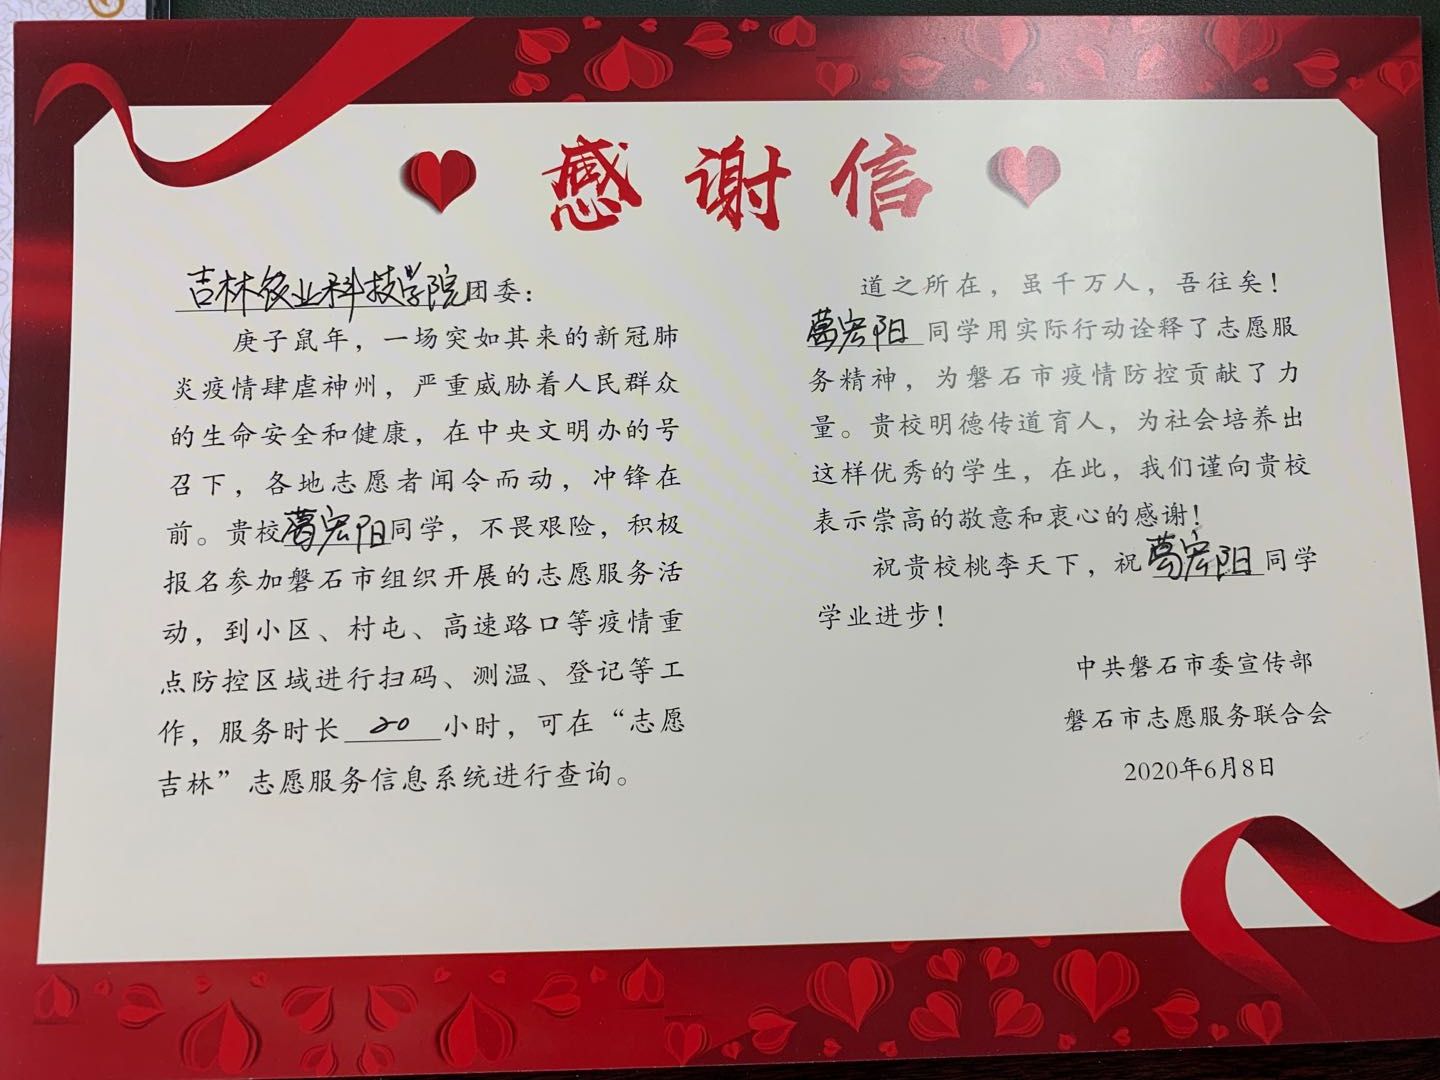 感谢信
吉林农业科技学院团委：
庚子鼠年，一场突如其来的新冠肺
炎疫情肆虐神州，严重威胁着人民群众
的生命安全和健康，在中央文明办的号
召下，各地志愿者闻令而动，冲锋在
前。贵校葛宏阳同学，不畏艰险，积极
报名参加磐石市组织开展的志愿服务活
动，到小区、村屯、高速路口等疫情重
点防控区域进行扫码、测温、登记等工
作，服务时长20小时，可在“志愿
吉林”志愿服务信息系统进行查询。
道之所在，虽千万人，吾往矣！
葛宏阳同学用实际行动诠释了志愿服
务精神，为磐石市疫情防控贡献了力
量。贵校明德传道育人，为社会培养出
这样优秀的学生，在此，我们谨向贵校
表示崇高的敬意和衷心的感谢！
祝贵校桃李天下，祝葛宏阳同学
学业进步！
中共磐石市委宣传部
磐石市志愿服务联合会
2020年6月8日